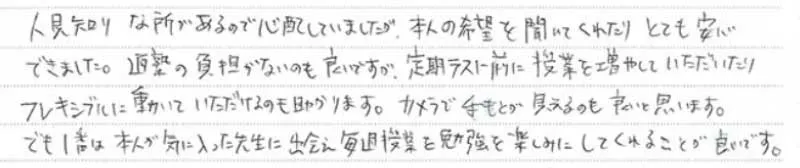 人見知りな所があるので心配していましたが、本人の希望を聞いてくれたりとても安心
できました。通塾の負担がないのも良いですが、定期テスト前に授業を増やしていただいたり
フレキシブルに動いていただけるのも助かります。カメラで手もとが見えるのも良いと思います。
でも1番は本人が気に入った先生に出会え毎週授業を勉強を楽しみにしてくれることが良いです。